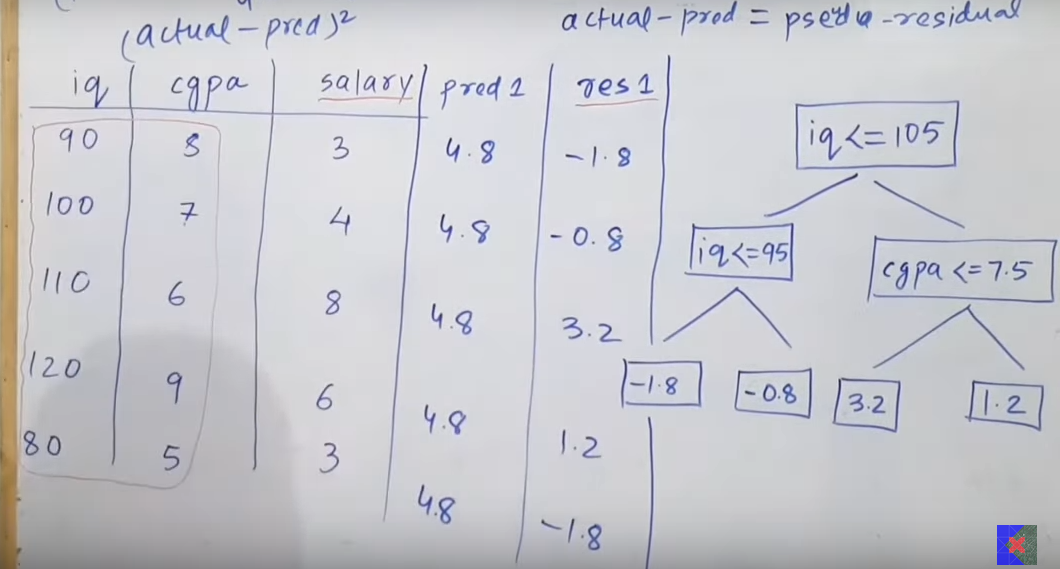 (actual-pred)²
actual-pred = pseudo-residual
iq cgpa salary pred 1 res 1
90 8 3 4.8 -1.8
100 7 4 4.8 -0.8
110 6 8 4.8 3.2
120 9 6 4.8 1.2
80 5 3 4.8 -1.8
iq<=105
iq<=95
cgpa<=7.5
-1.8
-0.8
3.2
1.2